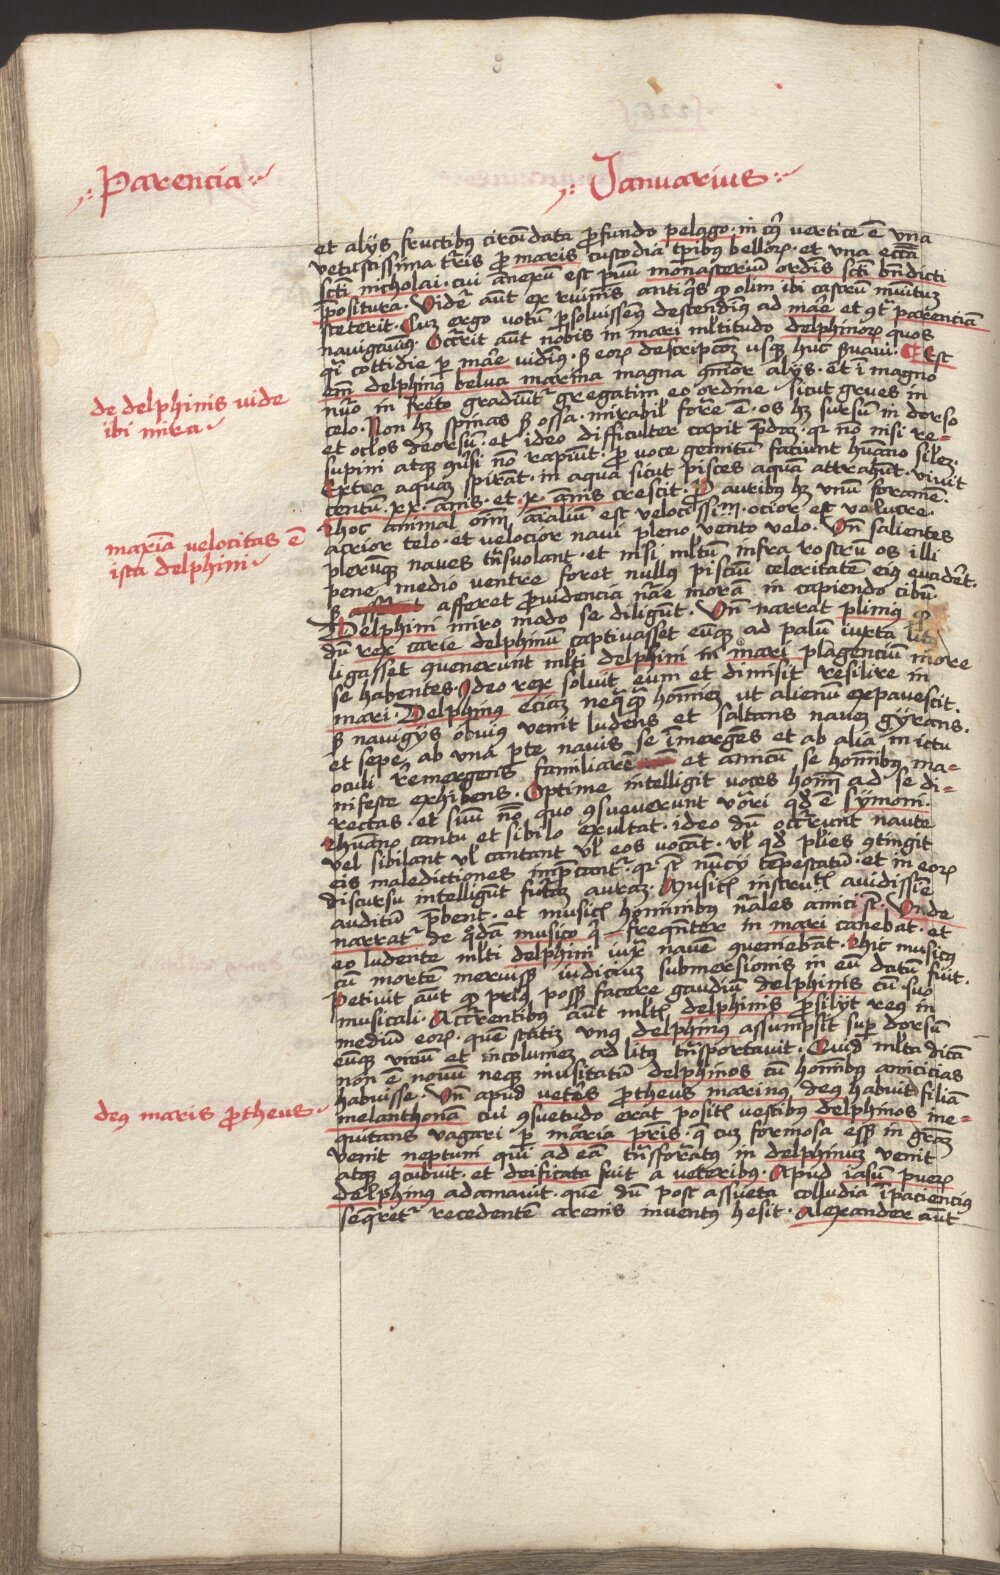 Parencia
Januarius
et alijs fructibus circumdata profundo pelago. in cuius vertice est una
vetustissima turris pro maris custodia temporibus bellorum. et una ecclesia
sancti nicholai. cui annexum est parvum monasterium ordinis sancti benedicti
prepositura. Videtur autem ex ruinis antiquis quod olim ibi castrum munitum
steterit. Cum ergo votum persoluissemus descendimus ad mare et contra parenciam
navigavimus. Occurrit autem nobis in mari multitudo delphinorum quos
quasi cottidie per mare vidimus. sed eorum descripcionem usque huc servavi. Est
enim delphinus belua marina magna quamvis alijs. et in magno
numero in freto gradiuntur gregatim eo ordine sicut grues in
celo. Non habet spinas sed ossa. mirabilis forme est. os habet sursum in dorso
et oculos deorsum. et ideo difficulter capit predam. quia non nisi re=
supini atque conversi non rapiunt. pro voce gemitum faciunt humano similem.
Extra aquam spirant. in aqua sicut pisces aquam attrahunt. vivit
centum. xx. annis. et. x. annis crescit. Pro auribus habet unum foramen.
hoc animal omnium animalium est velocissimum. ocior est volucre.
acrior telo. et velocior navi pleno vento velo. Unde salientes
plerumque naves transvolant. et nisi multum infra rostrum os illi
pene medio ventre foret nullus piscium celeritatem eius evaderet.
sed afferet providencia nature moram in capiendo cibum.
Delphini miro modo se diligunt. Unde narrat plinius quod
dum rex carie delphinum captivasset eumque ad palum iuxta litus
ligasset convenerunt multi delphini in mari plagencium more
se habentes. Ideo rex soluit eum et dimisit resilire in
mari. Delphinus eciam nequaquam hominem ut alienum expavescit.
sed navigijs obvius venit ludens et saltans navem gyrans.
et sepe ab una parte navis se immergens et ab alia in ictu
oculi remergens familiarem et amicum se hominibus ma=
nifeste exhibens. Optime intelligit voces hominum ad se di=
rectas. et suum nomen quo consueverunt vocari quod est symoni.
humano cantu et sibilo exultat. ideo dum occurrunt naute
vel sibilant vel cantant vel eos vocant. vel quod pluries contingit
eis maledictiones imprecantur. quia sunt nuncij tempestatum. et in eorum
discursu intelligunt futuram auram. Musicis instrumentis avidissime
auditum prebent. et musicis hominibus naturales amici sunt. Unde
narratur de quodam musico qui frequenter in mari canebat. et
eo ludente multi delphini iuxta navem conveniebant. hic musicus
cum mortem meruisset iudicium submersionis in eum datum fuit.
Petivit autem quod prius posset facere gaudium delphinis cum suo
musicali. Accurrentibus autem multis delphinis prosilijt reus in
medium eorum. quem statim unus delphinus assumpsit super dorsum
eumque vivum et incolumem ad litus transportavit. Quid multa dicam
non est novum neque inusitatum delphinos cum hominibus amicicias
habuisse. Unde apud veteres protheus marinus deus habuit filiam
melanthonam cui consuetudo erat positis vestibus delphinos ine=
quitans vagari per maria patris. que cum formosa esset in gratiam
venit neptuni qui ad eam transformatus in delphinum venit
atque concubuit. et deificata fuit a veteribus. Apud iasum puerum
delphinus adamavit. quem dum post assueta colludia impaciencius
sequeretur recedentem arenis inventus hesit. Alexander autem
de delphinis vide
ibi mira.
maxima velocitas est
ista delphini
deus maris protheus.